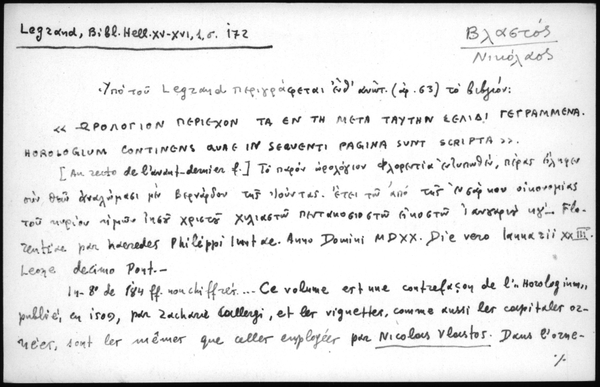 Legrand, Bibl. Hell. XV-XVI, 1, σ. 172
Βλαστός
Νικόλαος
Ὑπό τοῦ Legrand περιγράφεται ἐνθ' ἀνωτ. (ἀρ. 63) τό βιβλίον:
« ΩΡΟΛΟΓΙΟΝ ΠΕΡΙΕΧΟΝ ΤΑ ΕΝ ΤΗ ΜΕΤΑ ΤΑΥΤΗΝ ΣΕΛΙΔΙ ΓΕΓΡΑΜΜΕΝΑ.
HOROLOGIUM CONTINENS QUAE IN SEQUENTI PAGINA SUNT SCRIPTA ».
[Au recto de l'avant-dernier f.] Τό παρόν ὡρολόγιον Φλορεντία ἐντυπωθέν, πέρας εἴληφεν
σύν θεῷ ἀναλώμασι μέν Βερνάρδου τῆς Ἰούντας. ἔτει τῷ ἀπό τῆς ἐνσάρκου οἰκονομίας
τοῦ κυρίου ἡμῶν Ἰησοῦ Χριστοῦ χιλιοστῷ πεντακοσιοστῷ εἰκοστῷ Ἰανουαρίου κγ'. – Flo-
rentiae par haeredes Philippi Iuntae. Anno Domini MDXX. Die vero Ianuarii XXIII.
Leone decimo Pont.–
In-8º de 184 ff. non chiffrés... Ce volume est une contrefaçon de l'« Horologium »,
publié, en 1509, par Zacharie Calliergi, et les vignettes, comme aussi les capitales or-
nées, sont les mêmes que celles employées par Nicolas Vlastos. Dans l'orne-
%